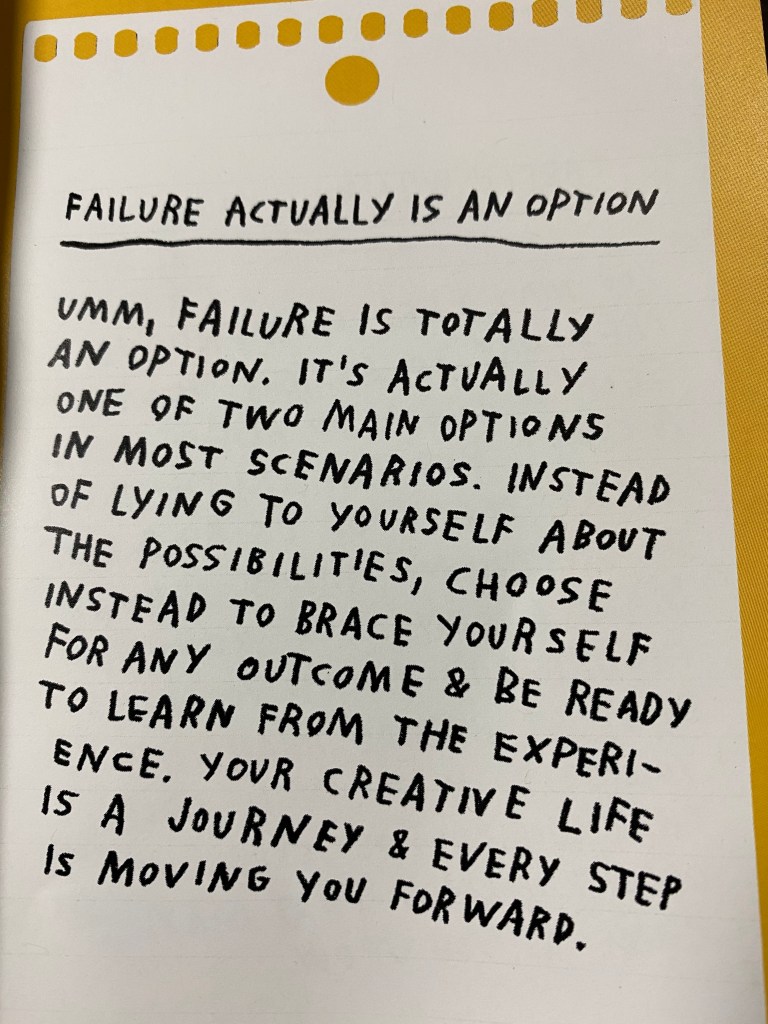 FAILURE ACTUALLY IS AN OPTION
UMM, FAILURE IS TOTALLY
AN OPTION. IT'S ACTUALLY
ONE OF TWO MAIN OPTIONS
IN MOST SCENARIOS. INSTEAD
OF LYING TO YOURSELF ABOUT
THE POSSIBILITIES, CHOOSE
INSTEAD TO BRACE YOURSELF
FOR ANY OUTCOME & BE READY
TO LEARN FROM THE EXPERI-
ENCE. YOUR CREATIVE LIFE
IS A JOURNEY & EVERY STEP
IS MOVING YOU FORWARD.